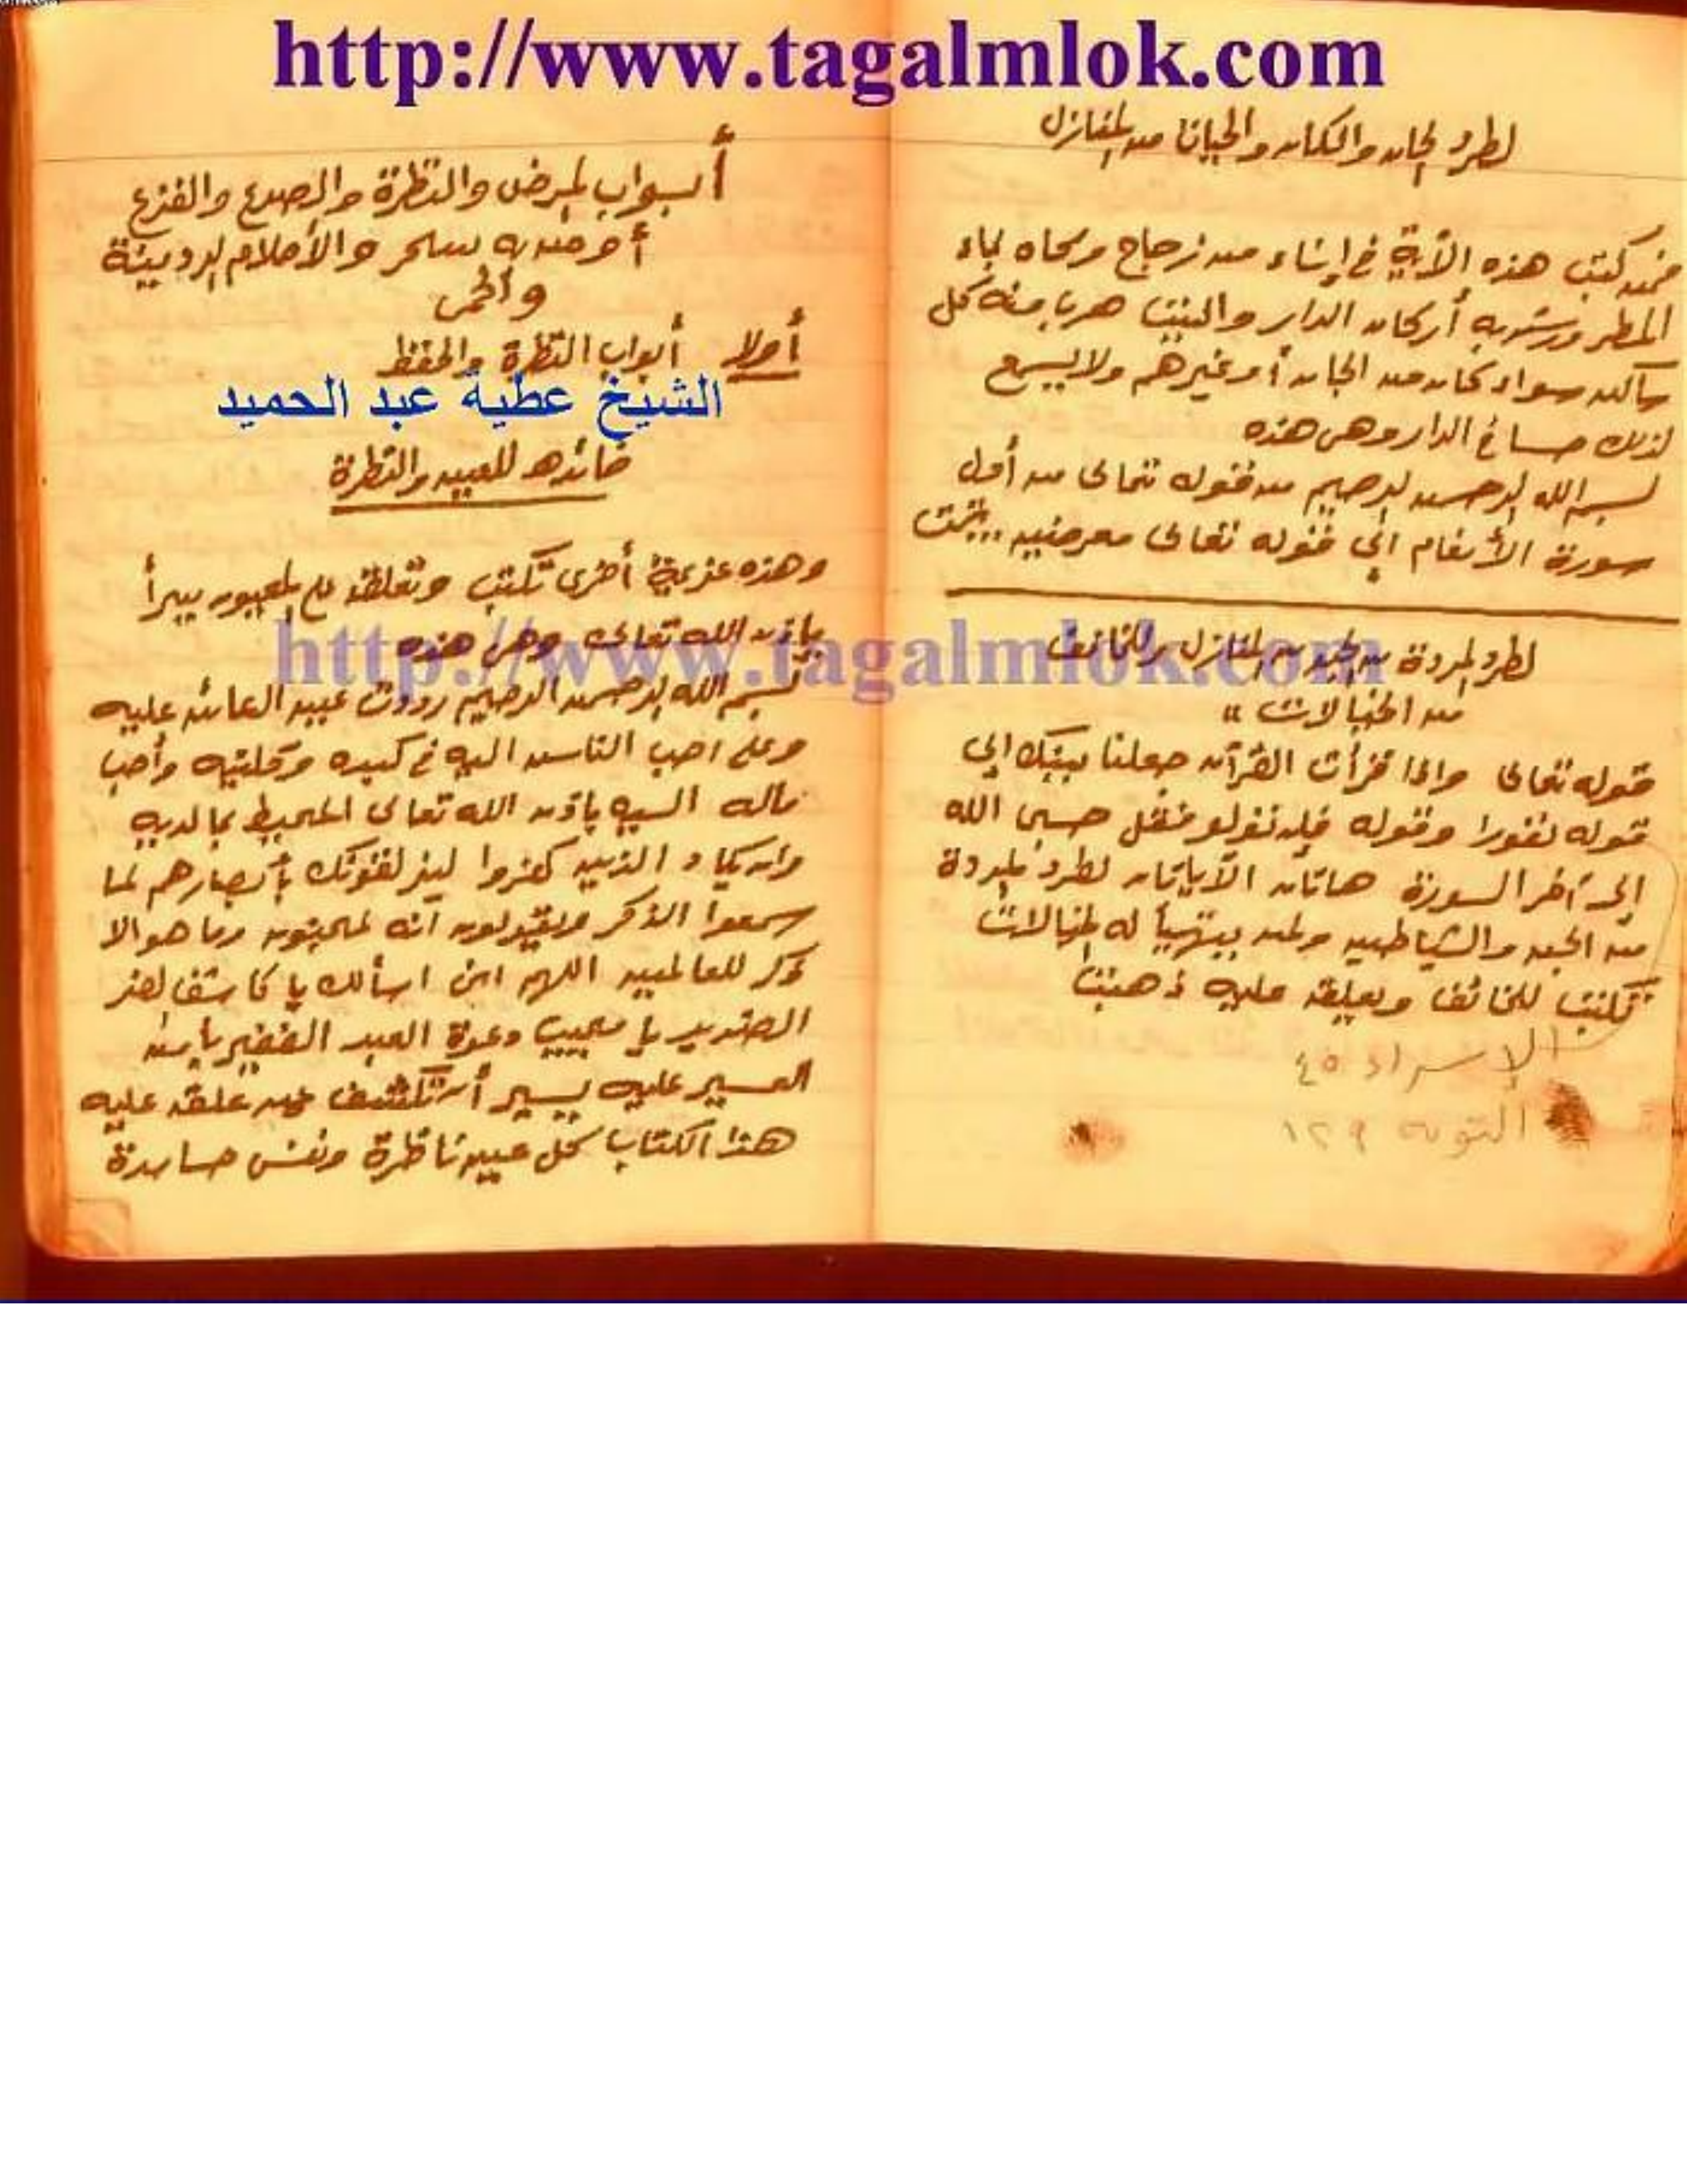 http://www.tagalmlok.com
لطرد الجان والسكان من المنازل
فمن كتب هذه الآية في إناء من زجاج ومحاه بماء
المطر ورش به أركان الدار والبيت هرب منه كل
ساكن سواء كان من الجان أو غيرهم ولا يسمع
لذلك حسا في الدار وهي هذه
بسم الله الرحمن الرحيم من قوله تعالى من أول
سورة الأنعام الى قوله تعالى معرضين .. تمت
لطرد المردة من الجن من المنازل وللخائف
من الخيالات "
قوله تعالى واذا قرأت القرآن جعلنا بينك إلى
قوله نفورا وقوله فإن تولو فقل حسبي الله
إلى آخر السورة هاتان الآياتان لطرد المردة
من الجن والشياطين ولمن يتهيأ له الخيالات
تكتب للخائف ويعلق عليه ذهبت
الإسراء ٤٥
التوبه ١٢٩
أبواب المرض والنظرة والصدع والفزع
أو من به سحر والأحلام الرديئة
والحمى
أولا أبواب النظرة والحفظ
الشيخ عطية عبد الحميد
فائده للعين والنظرة
وهذه عزيمة أخرى تكتب وتعلق على المعيون يبرأ
بإذن الله تعالى وهى هذه
http://www.tagalmlok.com
بسم الله الرحمن الرحيم رددت عين العائن عليه
وعلى احب الناس اليه في كبده وكليتيه وأحب
ماله اليه بإذن الله تعالى المحيط بما لديه
وان يكاد الذين كفروا ليزلقونك بأبصارهم لما
سمعوا الذكر ويقولون انه لمجنون وما هو الا
ذكر للعالمين اللهم انى اسألك يا كاشف لضر
الضرير يا مجيب دعوة العبد الفقير يا من
العسير عليه يسير أن تكشف عن من علق عليه
هذا الكتاب كل عين ناظرة ونفس حاسدة